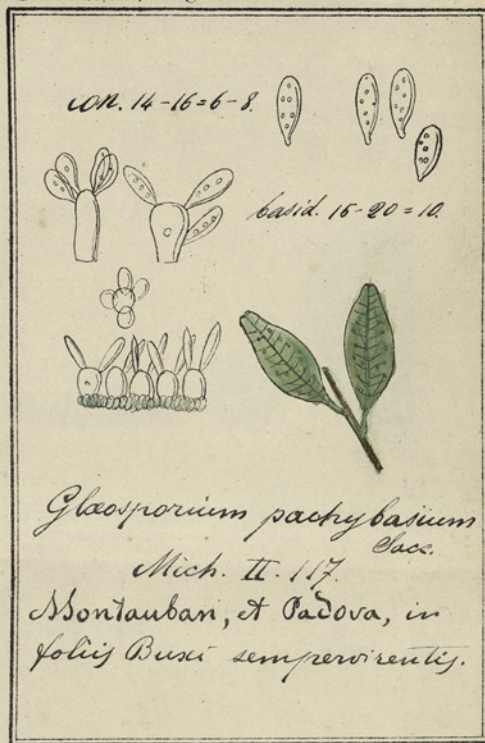 con. 14-16=6-8.
basid. 15-20=10.
Glœosporium pachybasium
Sacc.
Mich. II. 117.
Montauban, et Padova, in
foliis Buxi sempervirentis.